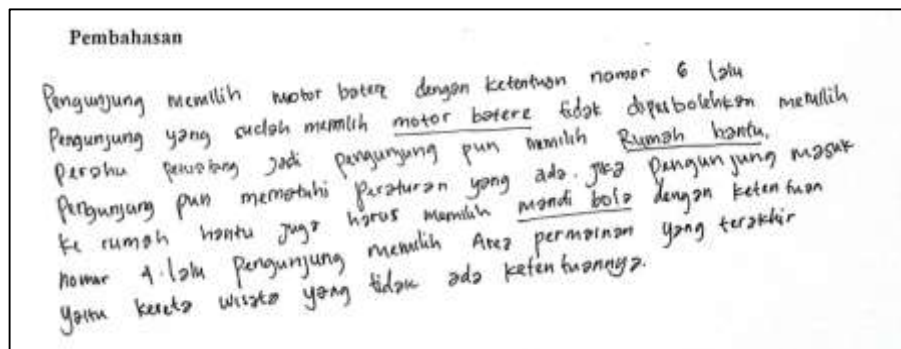 Pembahasan
Pengunjung memilih motor batere dengan ketentuan nomor 6 lalu
Pengunjung yang sudah memilih motor batere tidak diperbolehkan memilih
Perahu jadi pengunjung pun memilih Rumah hantu.
Pengunjung pun mematuhi peraturan yang ada. jika pengunjung masuk
ke rumah hantu juga harus memilih mandi bola dengan ketentuan
nomor 4. lalu Pengunjung memilih Area permainan yang terakhir
yaitu kereta wisata yang tidak ada ketentuannya.